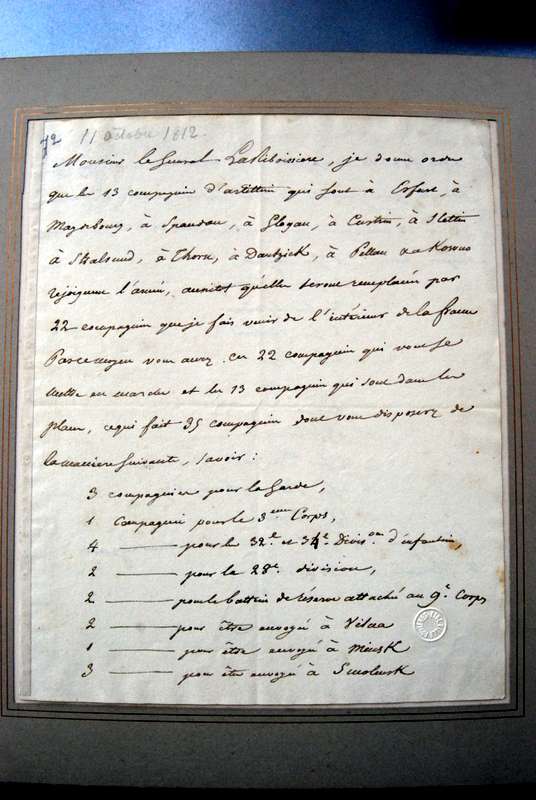 72
11 octobre 1812.
Monsieur le General Lariboissiere, je donne ordre
que les 13 compagnies d'artillerie qui sont à Erfurt, à
Magdebourg, à Spandau, à Glogau, à Custrin, à Stettin
à Stralsund, à Thorn, à Dantzick, à Pillau et à Kowno
rejoignent l'armée, aussitot qu'elles seront remplacées par
22 compagnies que je fais venir de l'intérieur de la france
Par ce moyen vous aurez ces 22 compagnies qui vont se
mettre en marche et les 13 compagnies qui sont dans les
places, ce qui fait 35 compagnies dont vous disposerez de
la maniere suivante, savoir :
3 compagnies pour la Garde,
1 Compagnie pour le 3eme Corps,
4 ——— pour les 32e et 34e Divisons d'infanterie,
2 ——— pour le 28e division,
2 ——— pour les batteries de réserve attaché au 9e Corps
2 ——— pour être envoyé à Vilna
1 ——— pour être envoyé à Minsk
3 ——— pour être envoyé à Smolensk